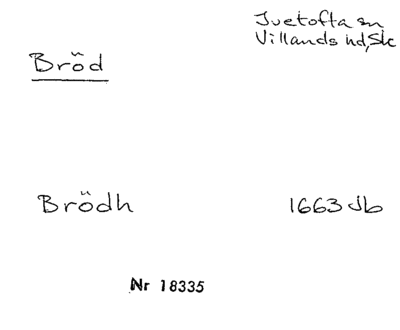 Ivetofta sn
Villands hd, Sk
Bröd
Brödh 1663 Jb
Nr 18335